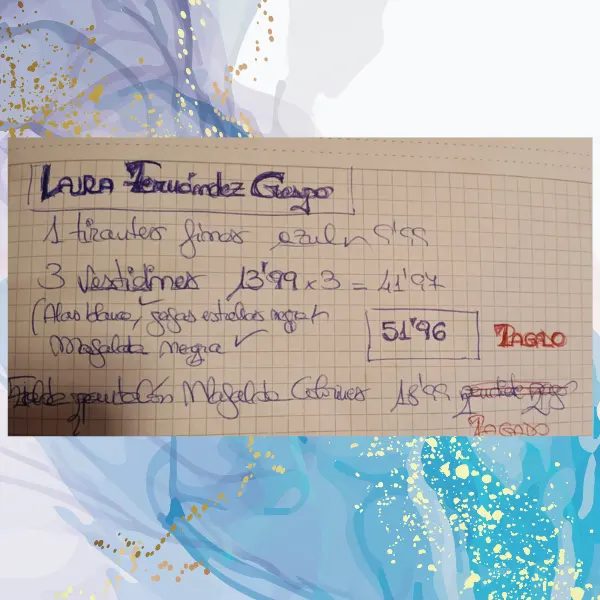 LAURA Fernández Crespo
1 tirantes finos azul 9'99
3 Vestidines 13'99 x 3 = 41'97
(Alas blanco, gafas estrellas negra)
Mafalda negra
51'96 PAGADO
pantalón Mafalda Colores 18'99
PAGADO